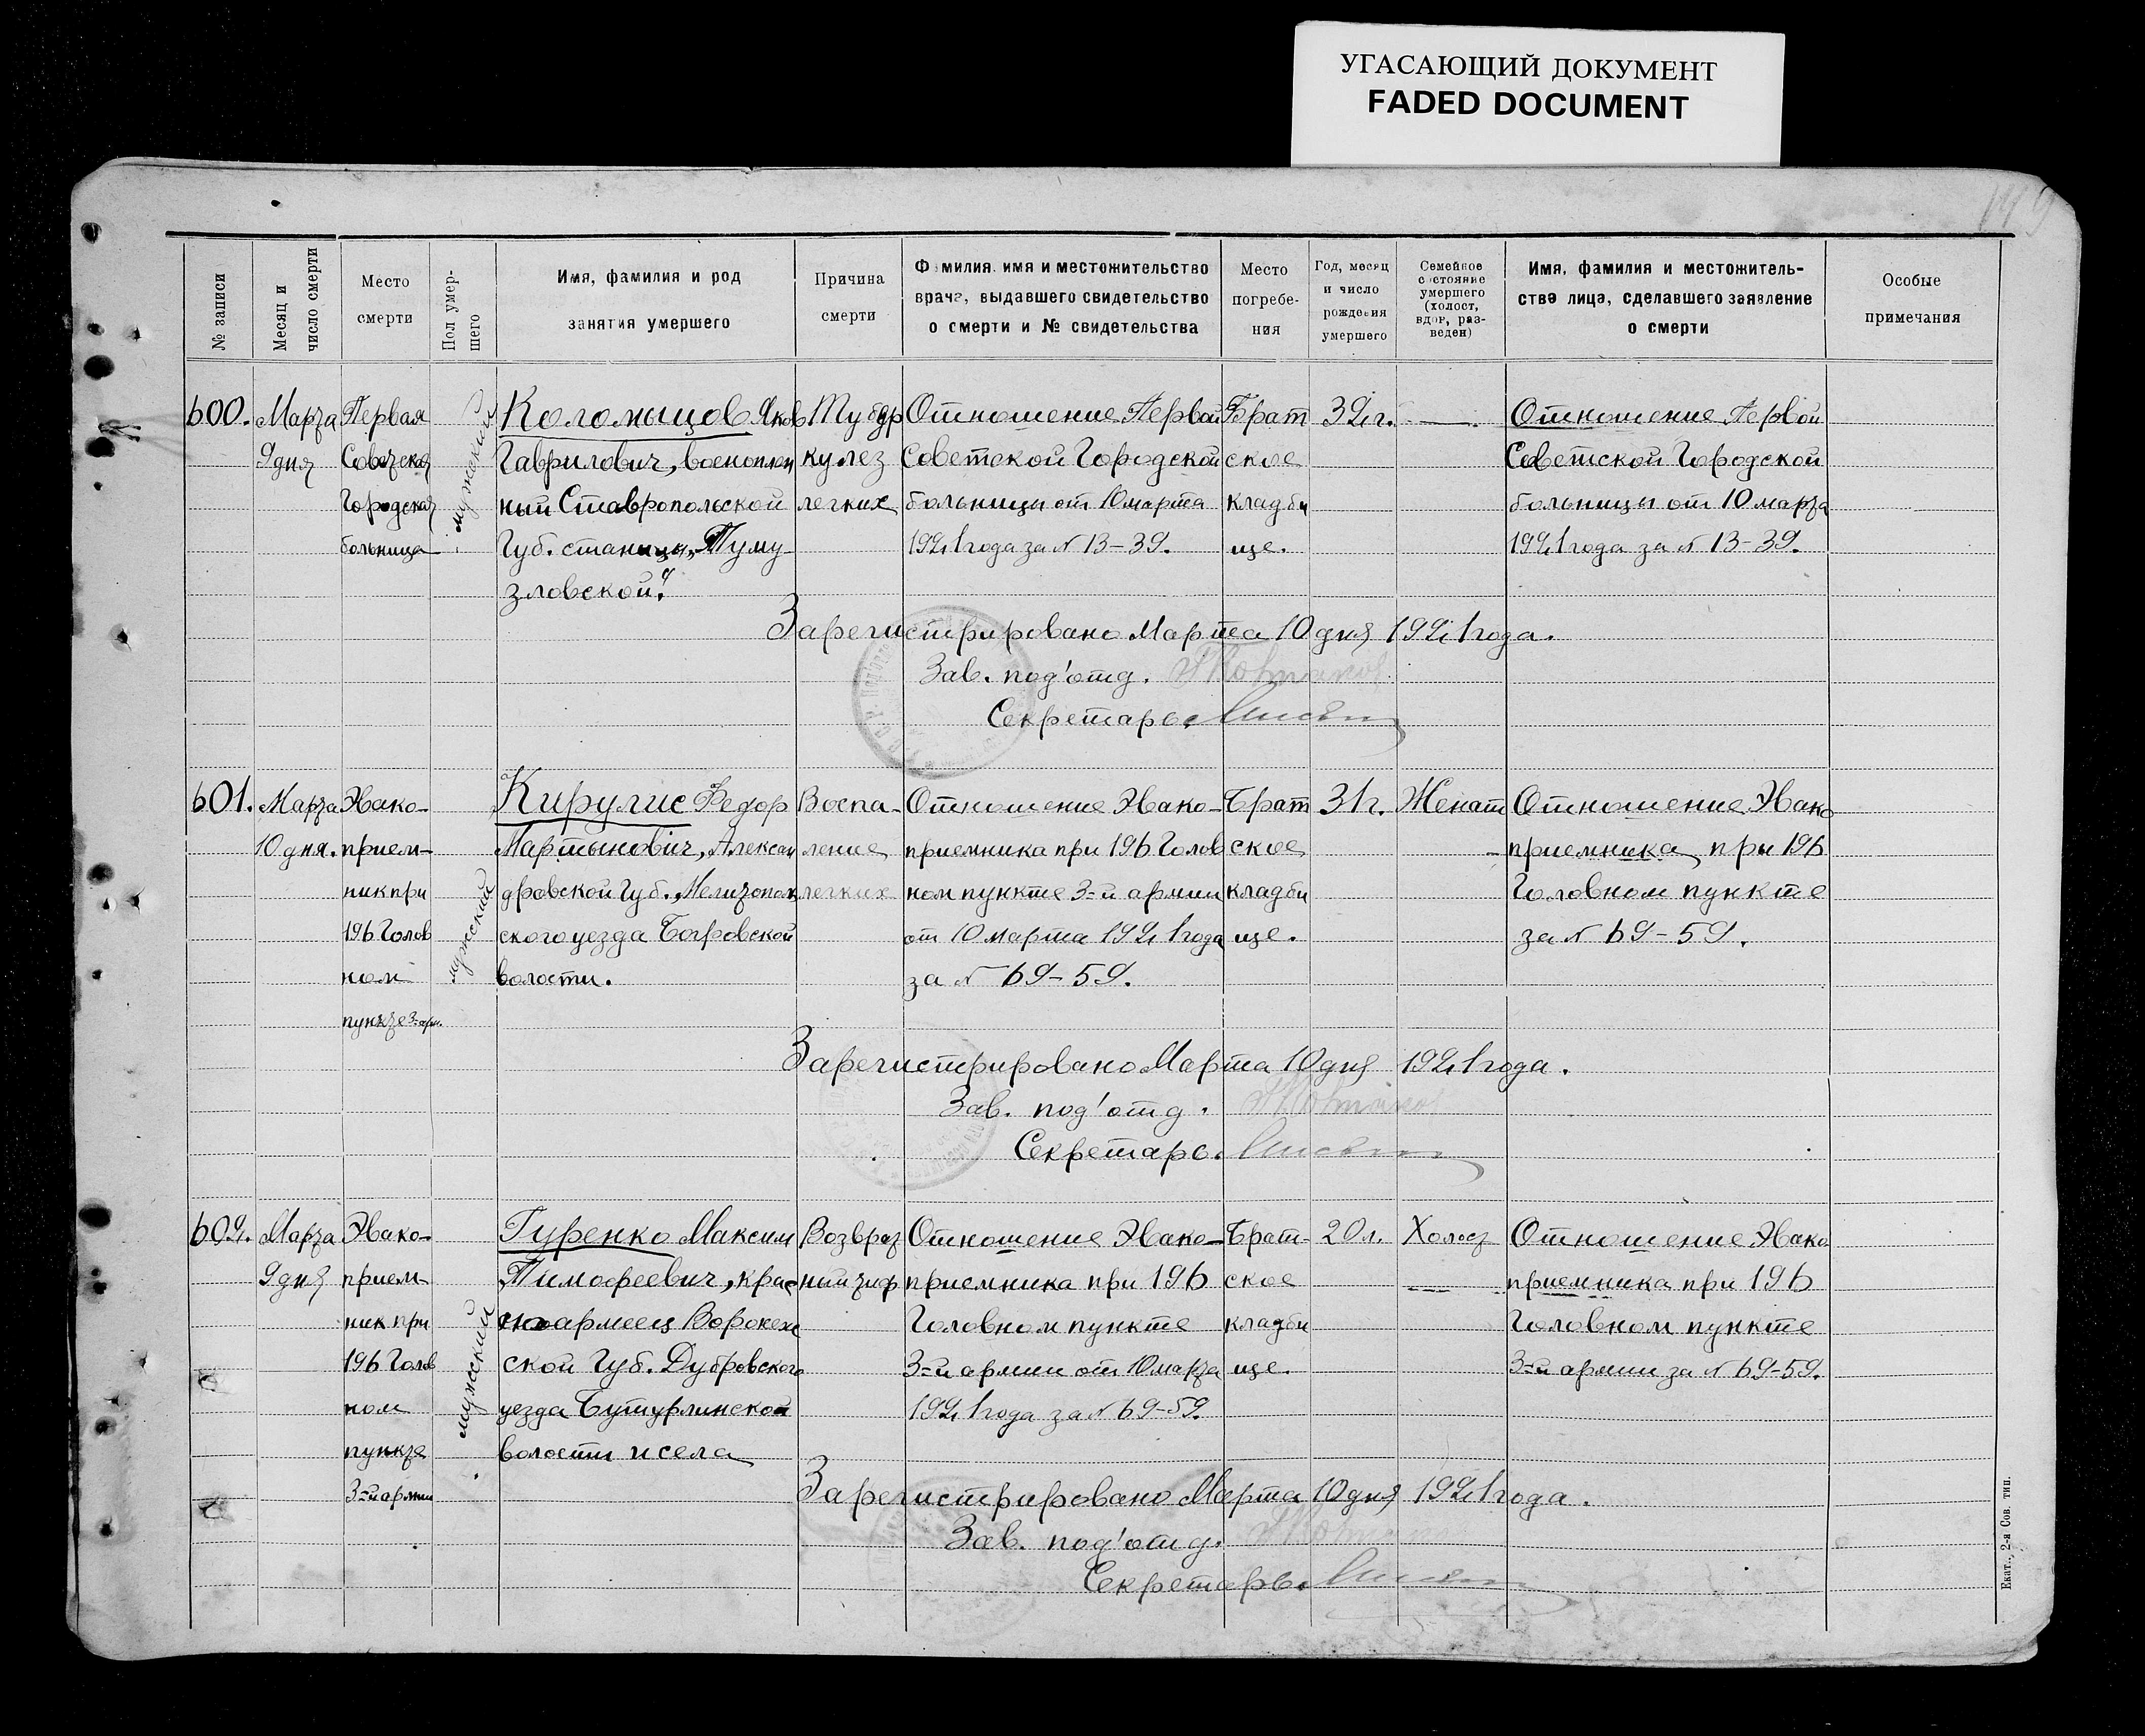 УГАСАЮЩИЙ ДОКУМЕНТ
FADED DOCUMENT
149
№ записи
Месяц и
число смерти
Место
смерти
Пол умер-
шего
Имя, фамилия и род
занятия умершего
Причина
смерти
Фамилия, имя и местожительство
врача, выдавшего свидетельство
о смерти и № свидетельства
Место
погребе-
ния
Год, месяц
и число
рождения
умершего
Семейное
состояние
умершего
(холост,
вдов, раз-
веден)
Имя, фамилия и местожитель-
ство лица, сделавшего заявление
о смерти
Особые
примечания
600.
Марта
9 дня
Первая
Советская
Городская
больница
мужеский
Коломыцов Яков
Гаврилович, военоплен
ный Ставропольской
Губ. станица „Туму-
зловской".
Тубер
кулез
легких
Отношение Первой
Советской Городской
больницы от 10 марта
1921 года за № 13-39.
Брат
ское
кладби
ще.
32 г.
—
Отношение Первой
Советской Городской
больницы от 10 марта
1921 года за № 13-39.
Зарегистрировано Марта 10 дня 1921 года.
Зав. под'отд.
Секретарь.
601.
Марта
10 дня.
Эвако-
прием-
ник при
196 Голов
ном
пункте 3-й арм.
мужеский
Кирулис Федор
Мартынович, Алексан
дровской Губ., Мелитополь
ского уезда
волости.
Воспа-
ление
легких
Отношение Эвако-
приемника при 196 Голов
ном пункте 3-й армии
от 10 марта 1921 года
за № 69-59.
Брат
ское
кладби
ще.
31 г.
Женат
Отношение Эвако
приемника при 196
Головном пункте
за № 69-59.
Зарегистрировано Марта 10 дня 1921 года.
Зав. под'отд.
Секретарь.
602.
Марта
9 дня
Эвако-
прием-
ник при
196 Голов
ном
пункте
3-й армии
мужеский
Гуренко Максим
Тимофеевич, крас
ноармеец Воронеж
ской Губ. Дубровского
уезда Бутурлинской
волости и села
Возврат
ный тиф
Отношение Эвако-
приемника при 196
Головном пункте
3-й армии от 10 марта
1921 года за № 69-59.
Брат-
ское
кладби
ще.
20 л.
Холост
Отношение Эвако
приемника при 196
Головном пункте
3-й армии за № 69-59.
Зарегистрировано Марта 10 дня 1921 года.
Зав. под'отд.
Секретарь.
Екат., 2-я Сов. тип.